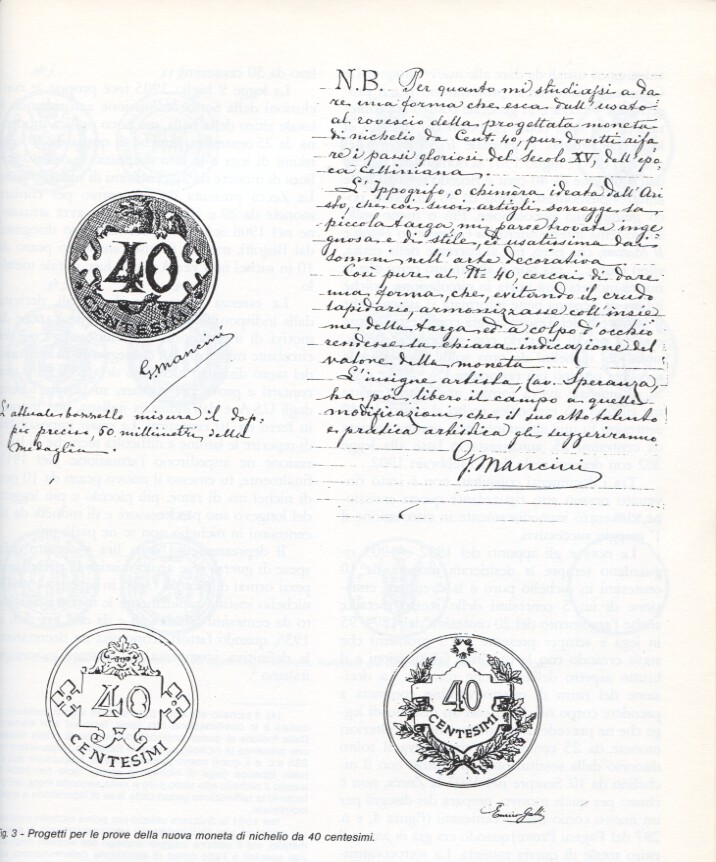 N.B. Per quanto mi studiassi a da
re una forma che esca dall'usato
al rovescio della progettata moneta
di nichelio da Cent. 40, pur dovetti rifa
re i passi gloriosi del Secolo XV, dell'epo
ca Celliniana.
L'Ippogrifo, o chimèra ideata dall'Ario
sto, che coi suoi artigli sorregge la
piccola targa mi parve trovata inge
gnosa e di stile, ed usatissima dai
sommi nell'arte decorativa
Così pure al N° 40, cercai di dare
una forma, che, evitando il crudo
lapidario, armonizzasse coll'insie
me della targa ed a colpo d'occhio
rendesse la chiara indicazione del
valore della moneta
L'insigne artista, (av. Speranza,
ha poi libero il campo a quelle
modificazioni che il suo alto talento
e pratica artistica gli suggeriranno
GMancini
40
CENTESIMI
GMancini
L'attuale bozzetto misura il dop
pio preciso, 50 millimetri, della
medaglia.
40
CENTESIMI
40
CENTESIMI
Fig. 3 - Progetti per le prove della nuova moneta di nichelio da 40 centesimi.